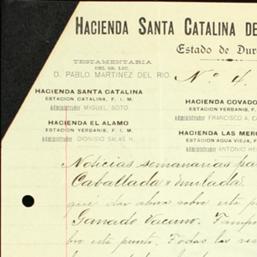 HACIENDA SANTA CATALINA DE
Estado de Dur
TESTAMENTARIA
DEL SR. LIC.
D. PABLO MARTINEZ DEL RIO.
Nº 4.
HACIENDA SANTA CATALINA
ESTACION CATALINA, F. I. M.
ADMINISTRADOR MIGUEL SOTO.
HACIENDA COVADO
ESTACION YERBANIS, F. I.
ADMINISTRADOR FRANCISCO A. C
HACIENDA EL ALAMO
ESTACION YERBANIS, F. I. M.
ADMINISTRADOR DIONISIO SALAS H.
HACIENDA LAS MERC
ESTACION AGUA VIEJA, F.
ADMINISTRADOR ANTONIO HE
Noticias semanarias pa
Caballada i mulada
que dar ahora sobre este p
Ganado Vacuno. Tampo
bre este punto. Todas las res